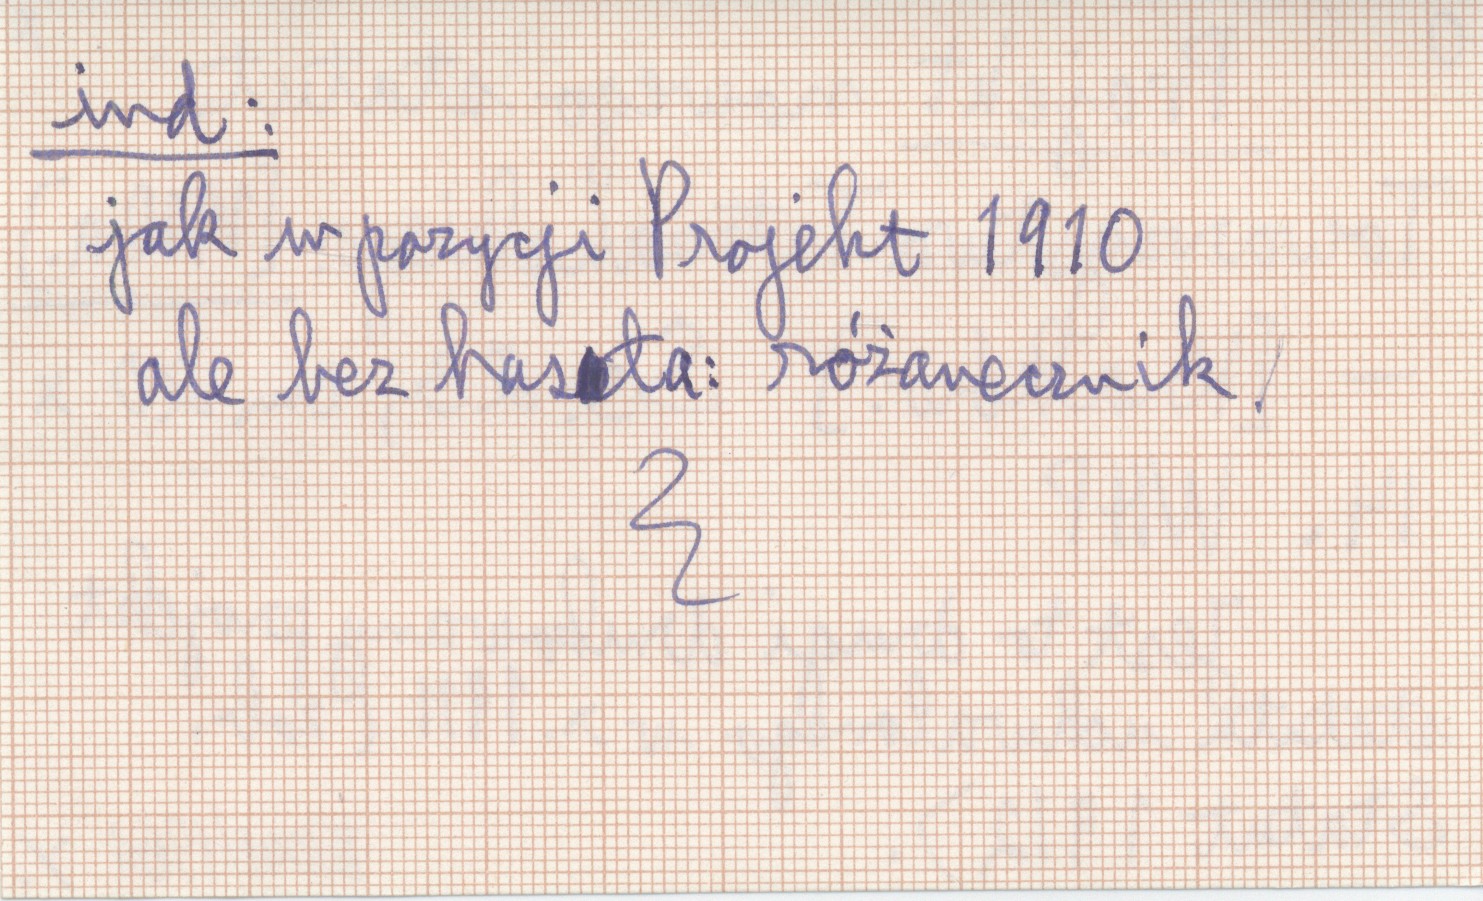 ind:
jak w pozycji Projekt 1910
ale bez hasła: różanecznik!